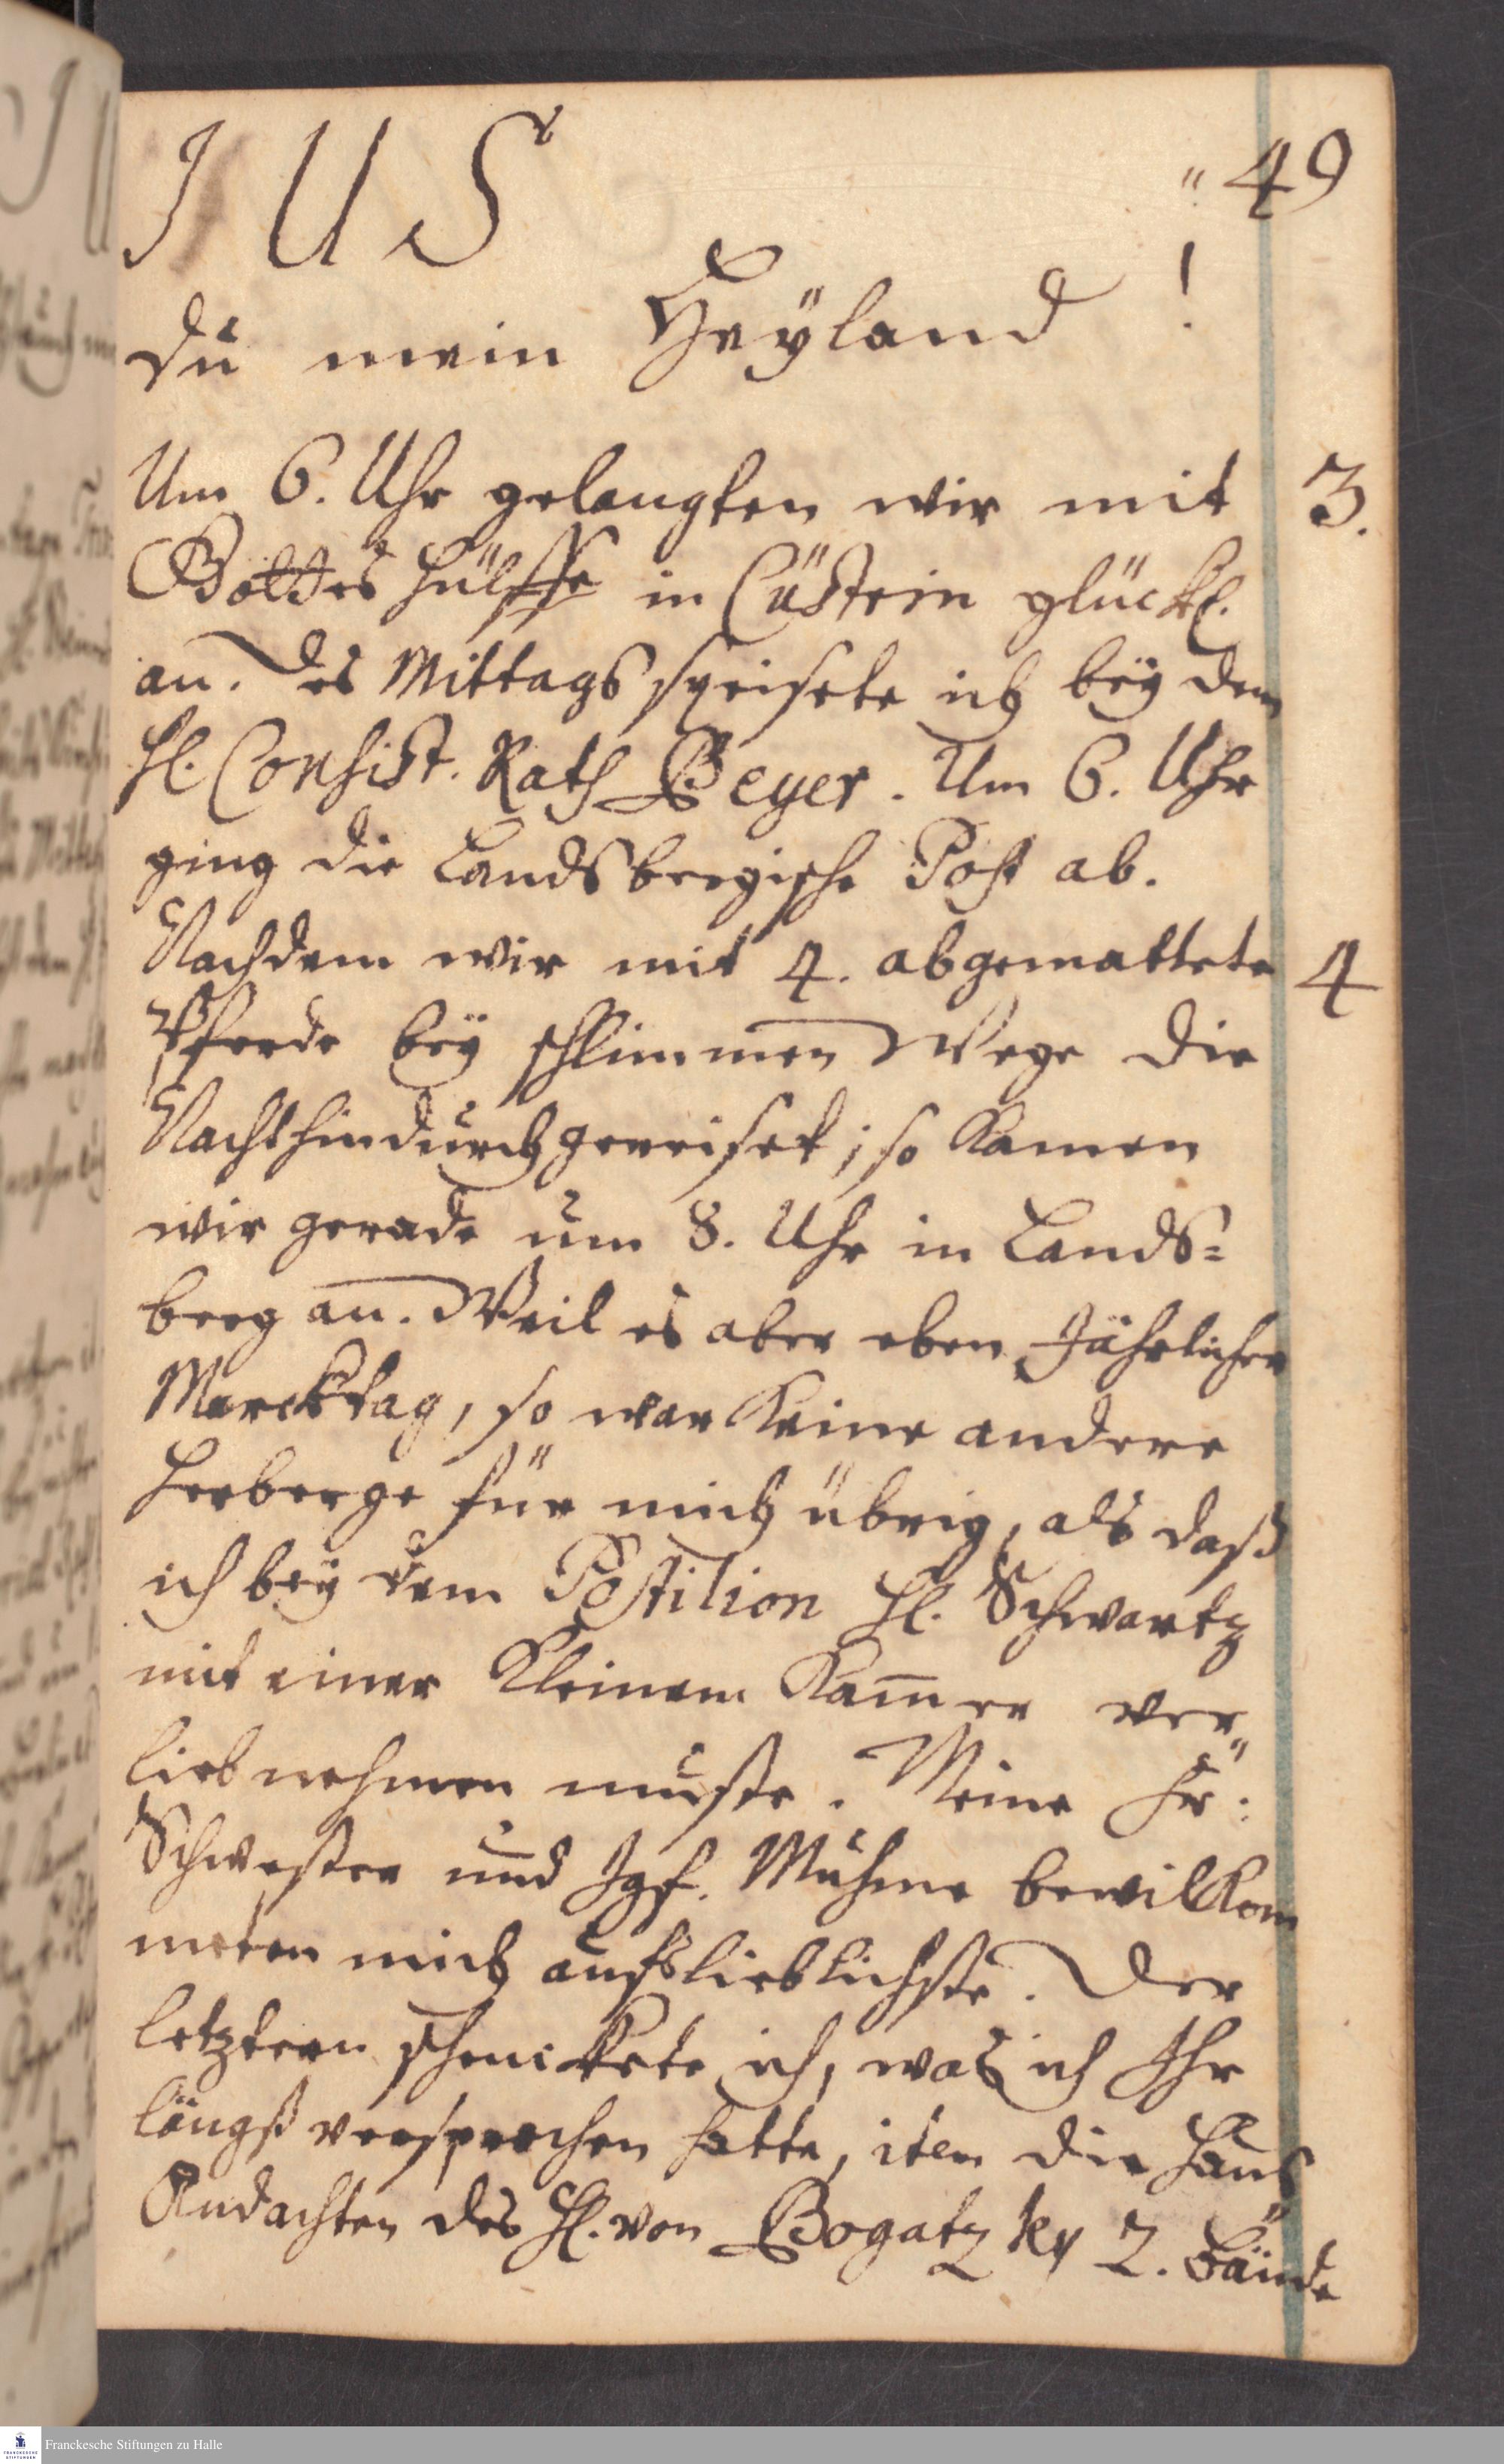 J U S
" 49
du mein Heyland !
Um 6. Uhr gelangten wir mit
3.
Gottes Hülffe in Cüstrin glückl.
an. Des Mittags speisete ich bey dem
Hl. Consist. Rath Beyer. Um 6. Uhr
ging die Landsbergische Post ab.
Nachdem wir mit 4. abgemattete
4
Pferde bey schlimmen Wege die
Nacht hindurch gereiset; so kamen
wir gerade um 8. Uhr in Lands=
berg an. Weil es aber eben Jährlicher
Marcktag, so war keine andere
Herberge für mich übrig, als daß
ich bey dem Postilion Hl. Schwartz
mit einer kleinem Kam̅er ver„
lieb nehmen muste. Meine Fr:
Schwester und Jgf. Muhme bewillkom
meten mich aufs lieblichste. Der
letztern schenckete ich, was ich Ihr
längst versprochen hatte, item die Haus„
Andachten des Hl. von Bogatzky 2. Bände
Franckesche Stiftungen zu Halle